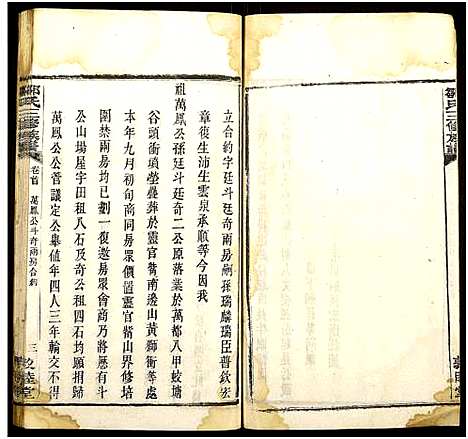 鄒氏三修族譜
立合約字廷斗廷奇兩房嗣孫瑞麟瑞臣普欽宏
章復生沛生雲泉承順等今因我
祖萬鳳公孫廷斗廷奇二公原落業於萬都八甲蛟塘
谷頭衝瑣塋疊葬於靈官觜南邊山黃獅衝等處
本年九月初旬兩房眾價置靈官觜山界修培
圍禁兩房均已劃一復邀房眾會商乃將應有斗
公山場屋宇田租八石及奇公租四石均願捐歸
萬鳳公公管議定公舉值年四人三年輪交不得
鄒氏三修族譜
卷首
萬鳳公斗奇兩房合約
三
敦睦堂
敦睦堂